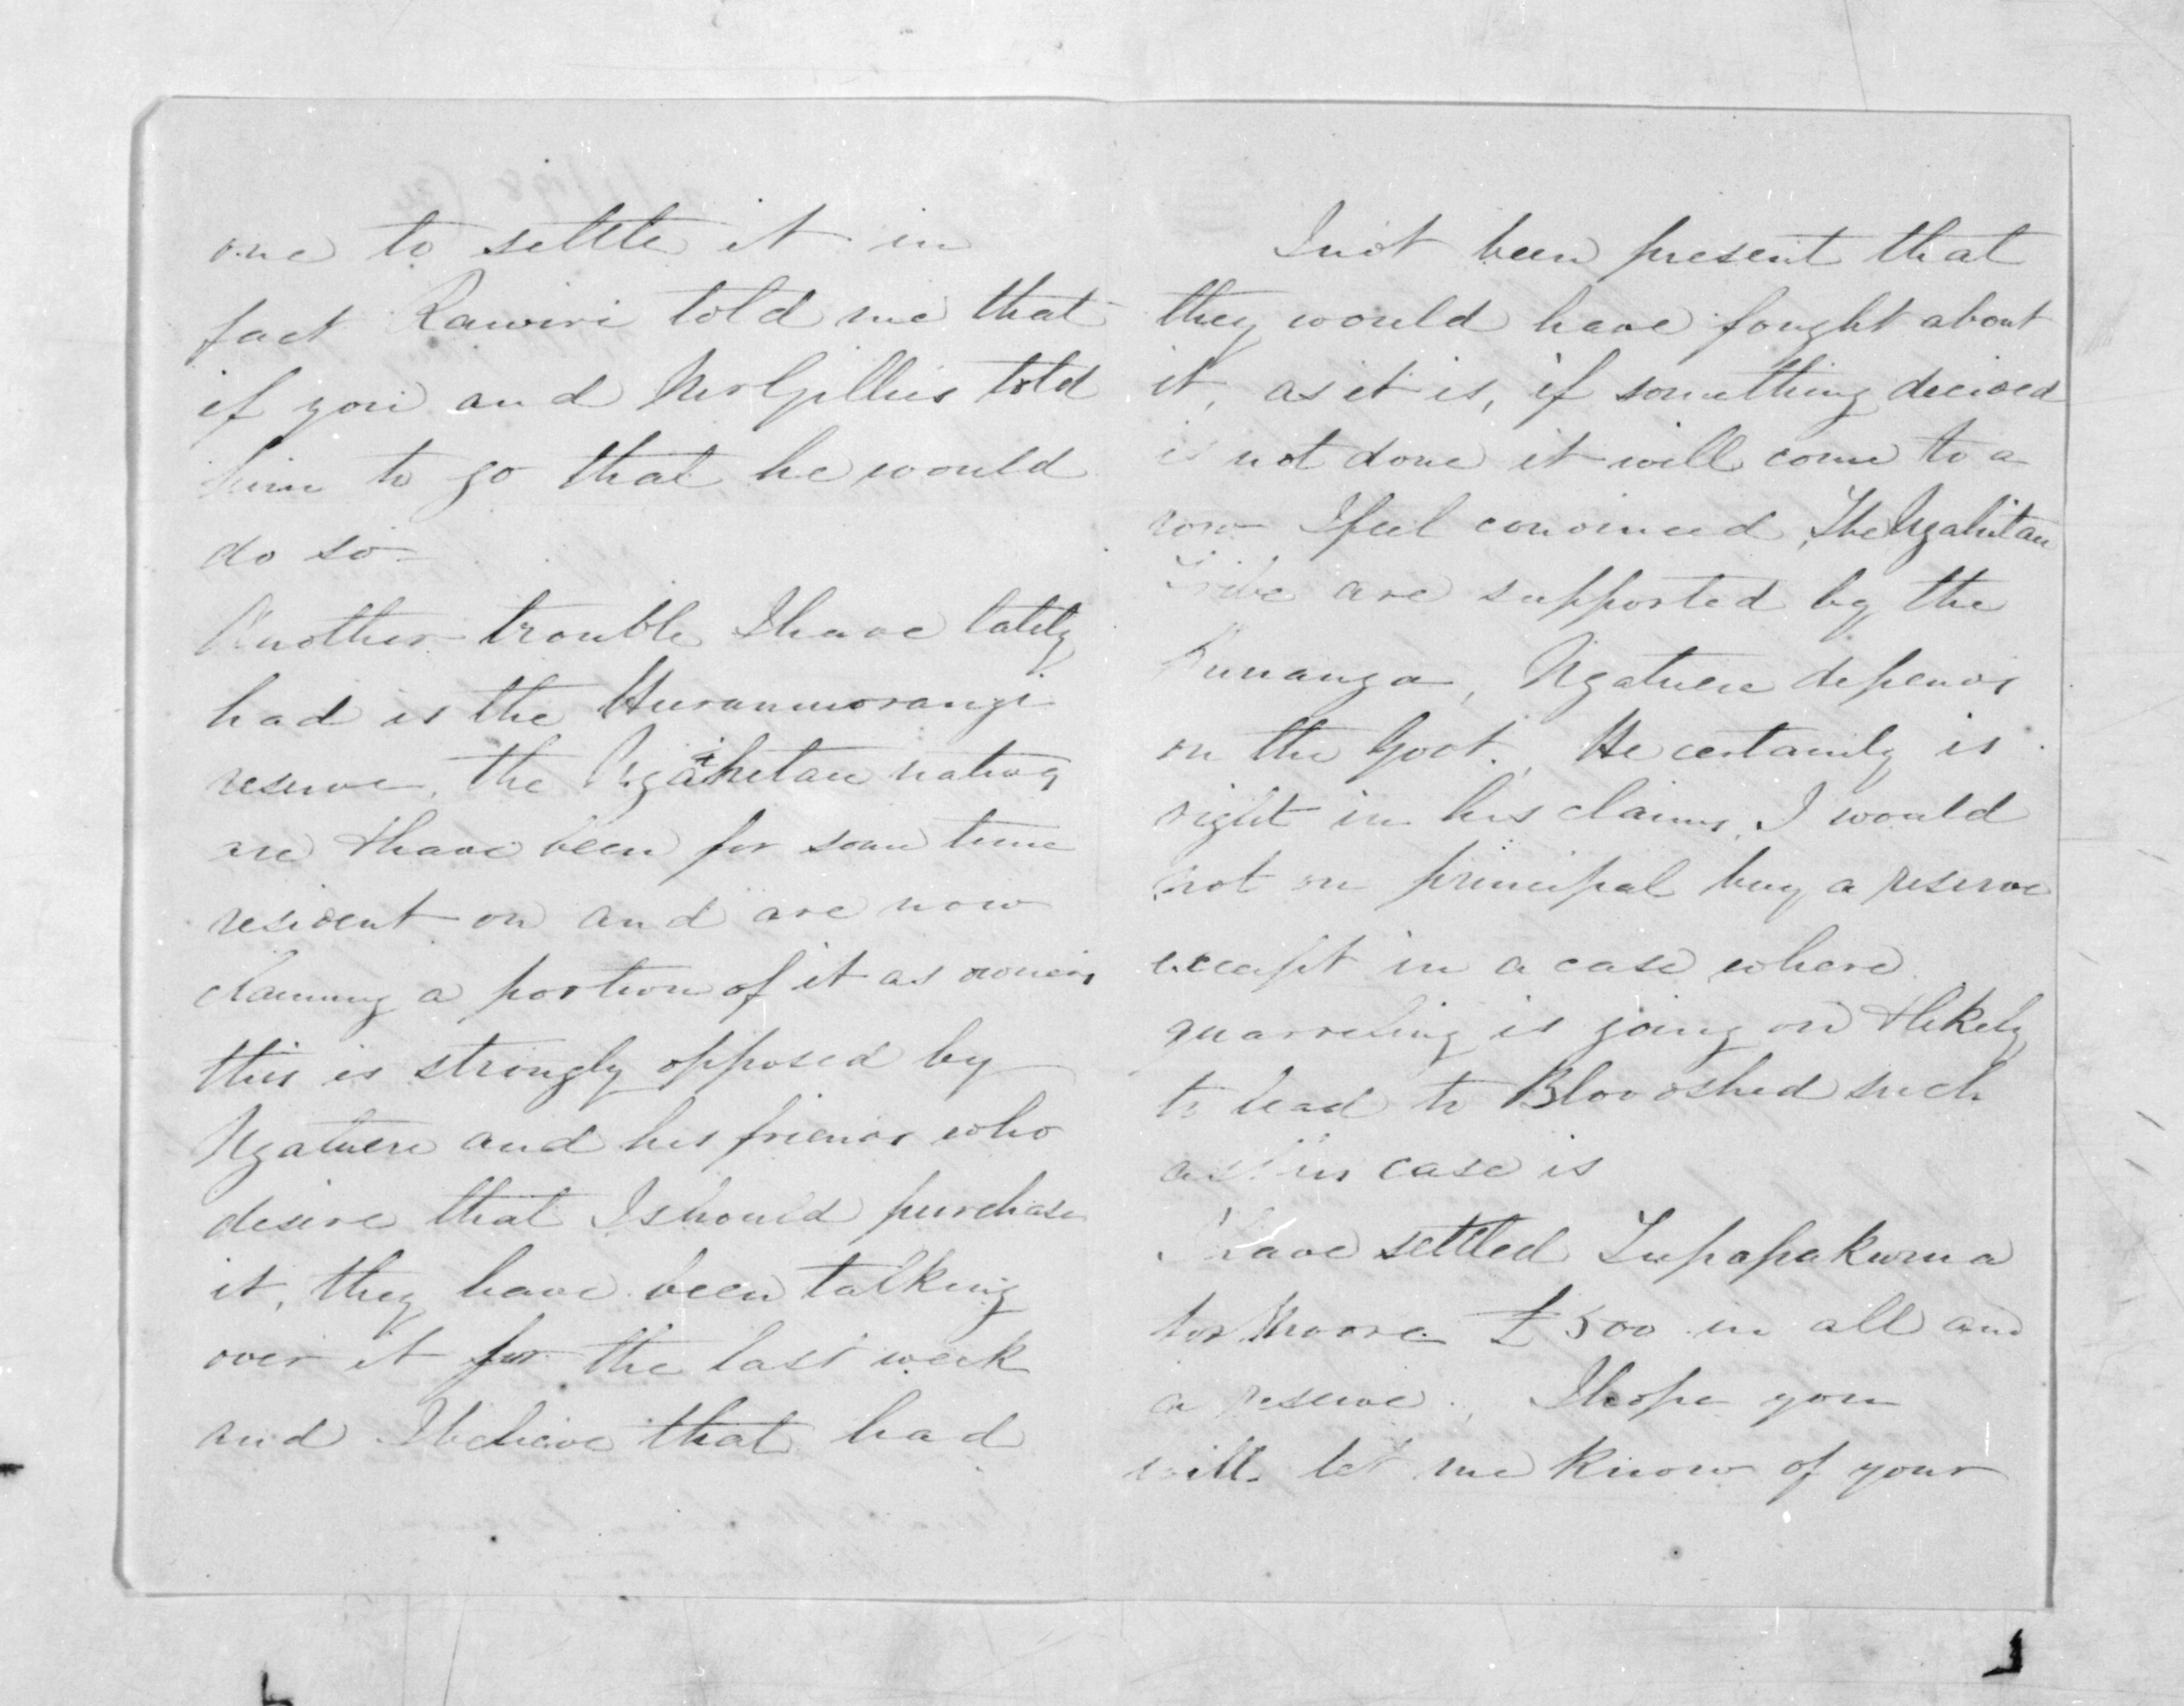 one to settle it in
fact Rawiri told me that
if you and Mr Gillies told
him to go that he would
do so
Another trouble I have lately
had is the Hurunuiorangi
reserve, the Ngaitahu natives
are & have been for some time
resident on and are now
claiming a portion of it as owners
this is strongly opposed by
Ngatuere and his friends who
desire that I should purchase
it, they have been talking
over it for the last week
and I believe that had
I not been present that
they would have fought about
it, as it is, if something decided
is not done it will come to a
row I feel convinced, The
Tribe are supported by the
Runanga, Ngatuere depends
on the Govt. He certainly is
right in his claims, I would
not on principal buy a reserve
except in a case where
quarreling is going on & likely
to lead to Bloodshed such
as this case is
I have settled Tupapakurua
for £500 in all and
a reserve. I hope you
will let me know of your